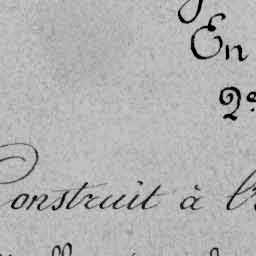 En
2e
Construit à l'